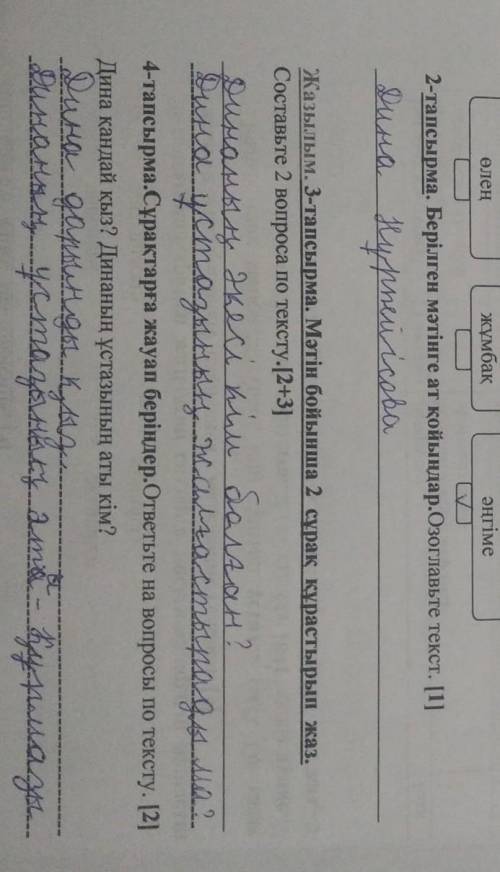 өлең жұмбақ әңгіме
✓
2-тапсырма. Берілген мәтінге ат қойыңдар.Озоглавьте текст. [1]
Дина Нұрпейісова
Жазылым. 3-тапсырма. Мәтін бойынша 2 сұрақ құрастырып жаз.
Составьте 2 вопроса по тексту.[2+3]
Динаның әкесі кім болған?
Дина ұстазының жалғастырады ма?
4-тапсырма.Сұрақтарға жауап беріңдер.Ответьте на вопросы по тексту. [2]
Дина қандай қыз? Динаның ұстазының аты кім?
Дина дарынды қыз.
Динаның ұстазының - Құрмазы